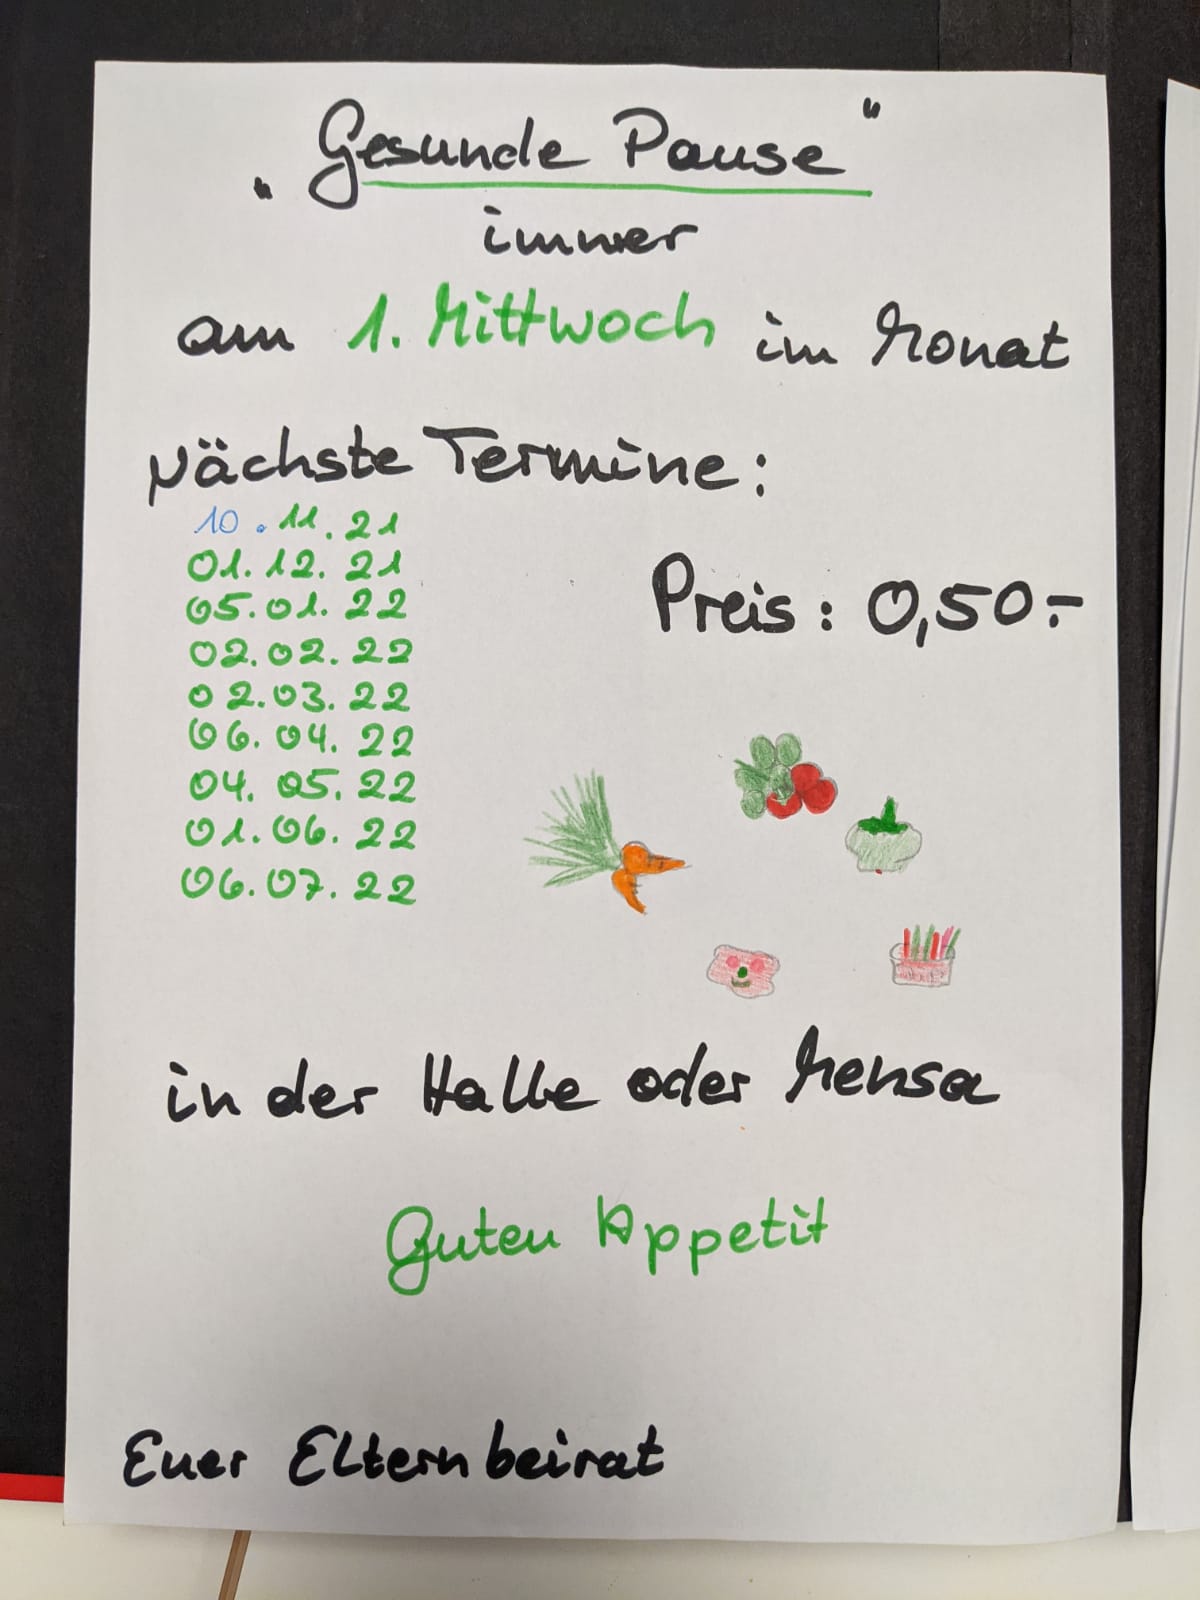 „Gesunde Pause“
immer
am 1. Mittwoch im Monat
Nächste Termine:
10.11.21
01.12.21
05.01.22
Preis: 0,50.-
02.02.22
02.03.22
06.04.22
04.05.22
01.06.22
06.07.22
in der Halle oder Mensa
Guten Appetit
Euer Elternbeirat